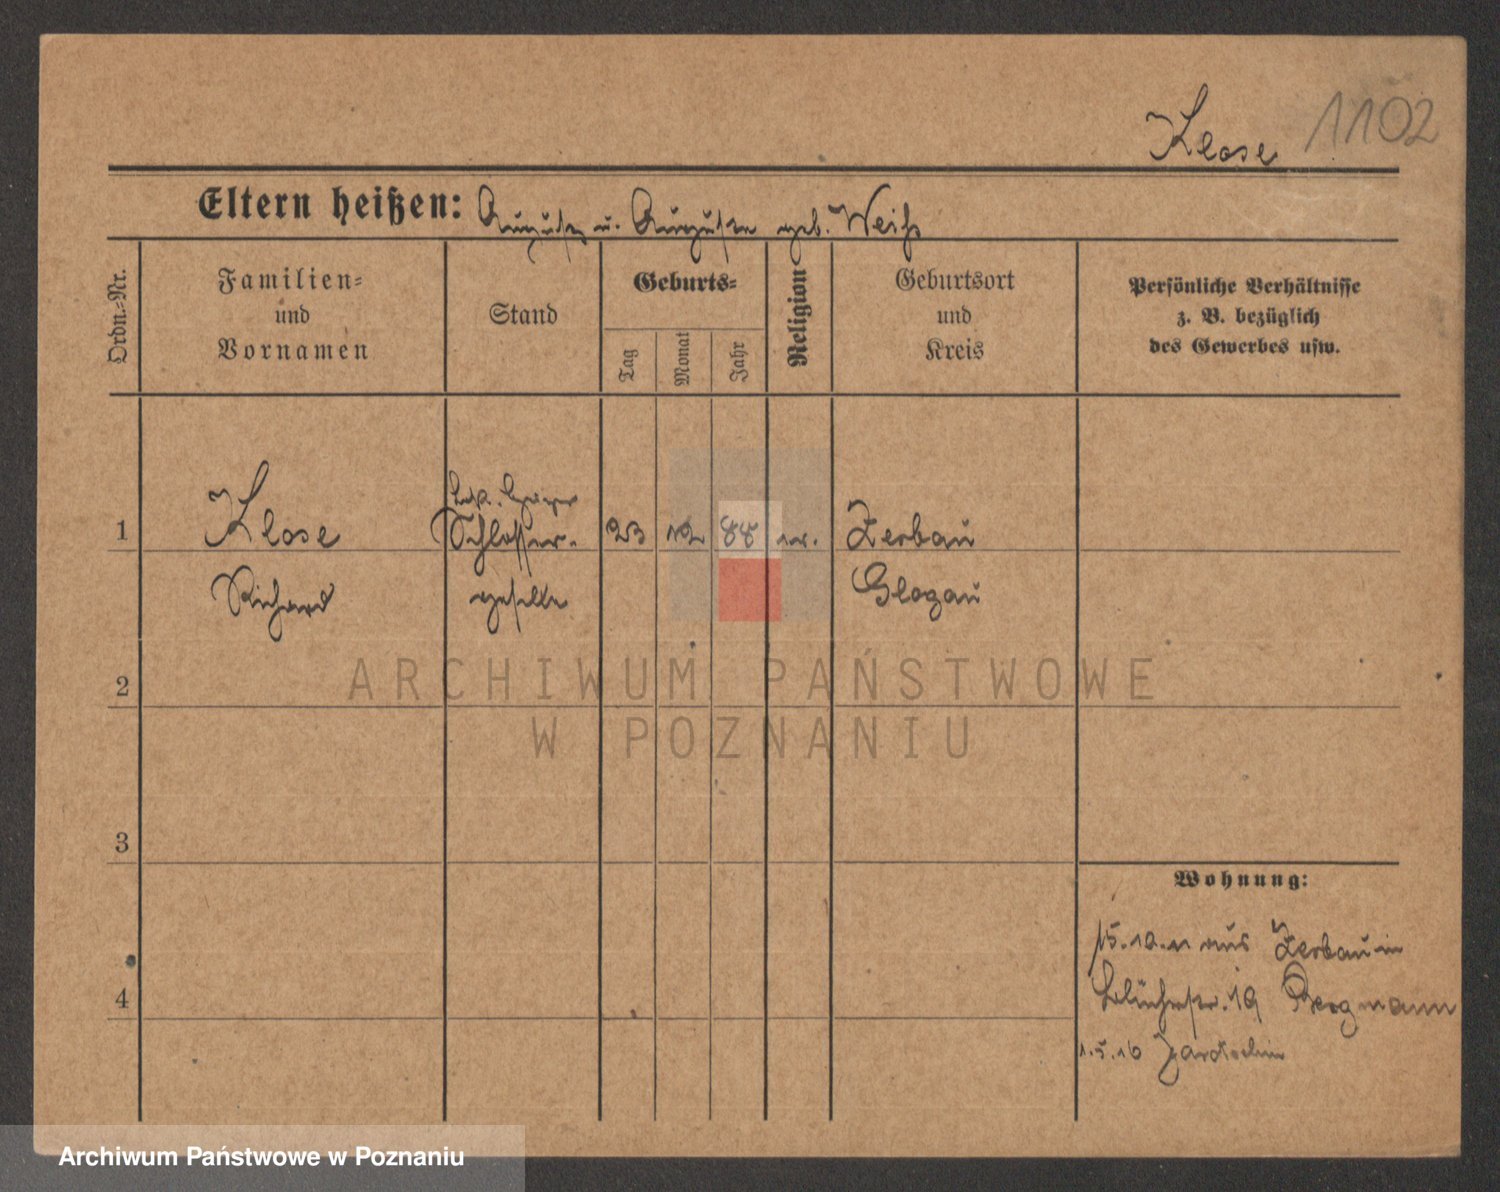 Klose 1102
Eltern heißen: August u. Auguste geb. Weiß
Ordn.-Nr.
Familien-
und
Vornamen
Stand
Geburts-
Tag
Monat
Jahr
Religion
Geburtsort
und
Kreis
Persönliche Verhältnisse
z. B. bezüglich
des Gewerbes usw.
1 Klose Schlosser- 23 12 88 Zerbau
Richard geselle Glogau
ARCHIWUM PAŃSTWOWE
W POZNANIU
2
3
4
Wohnung:
15.10.11 aus Zerbau in
Blücherstr. 19 Bergmann
1.5.16 Jarotschin
Archiwum Państwowe w Poznaniu